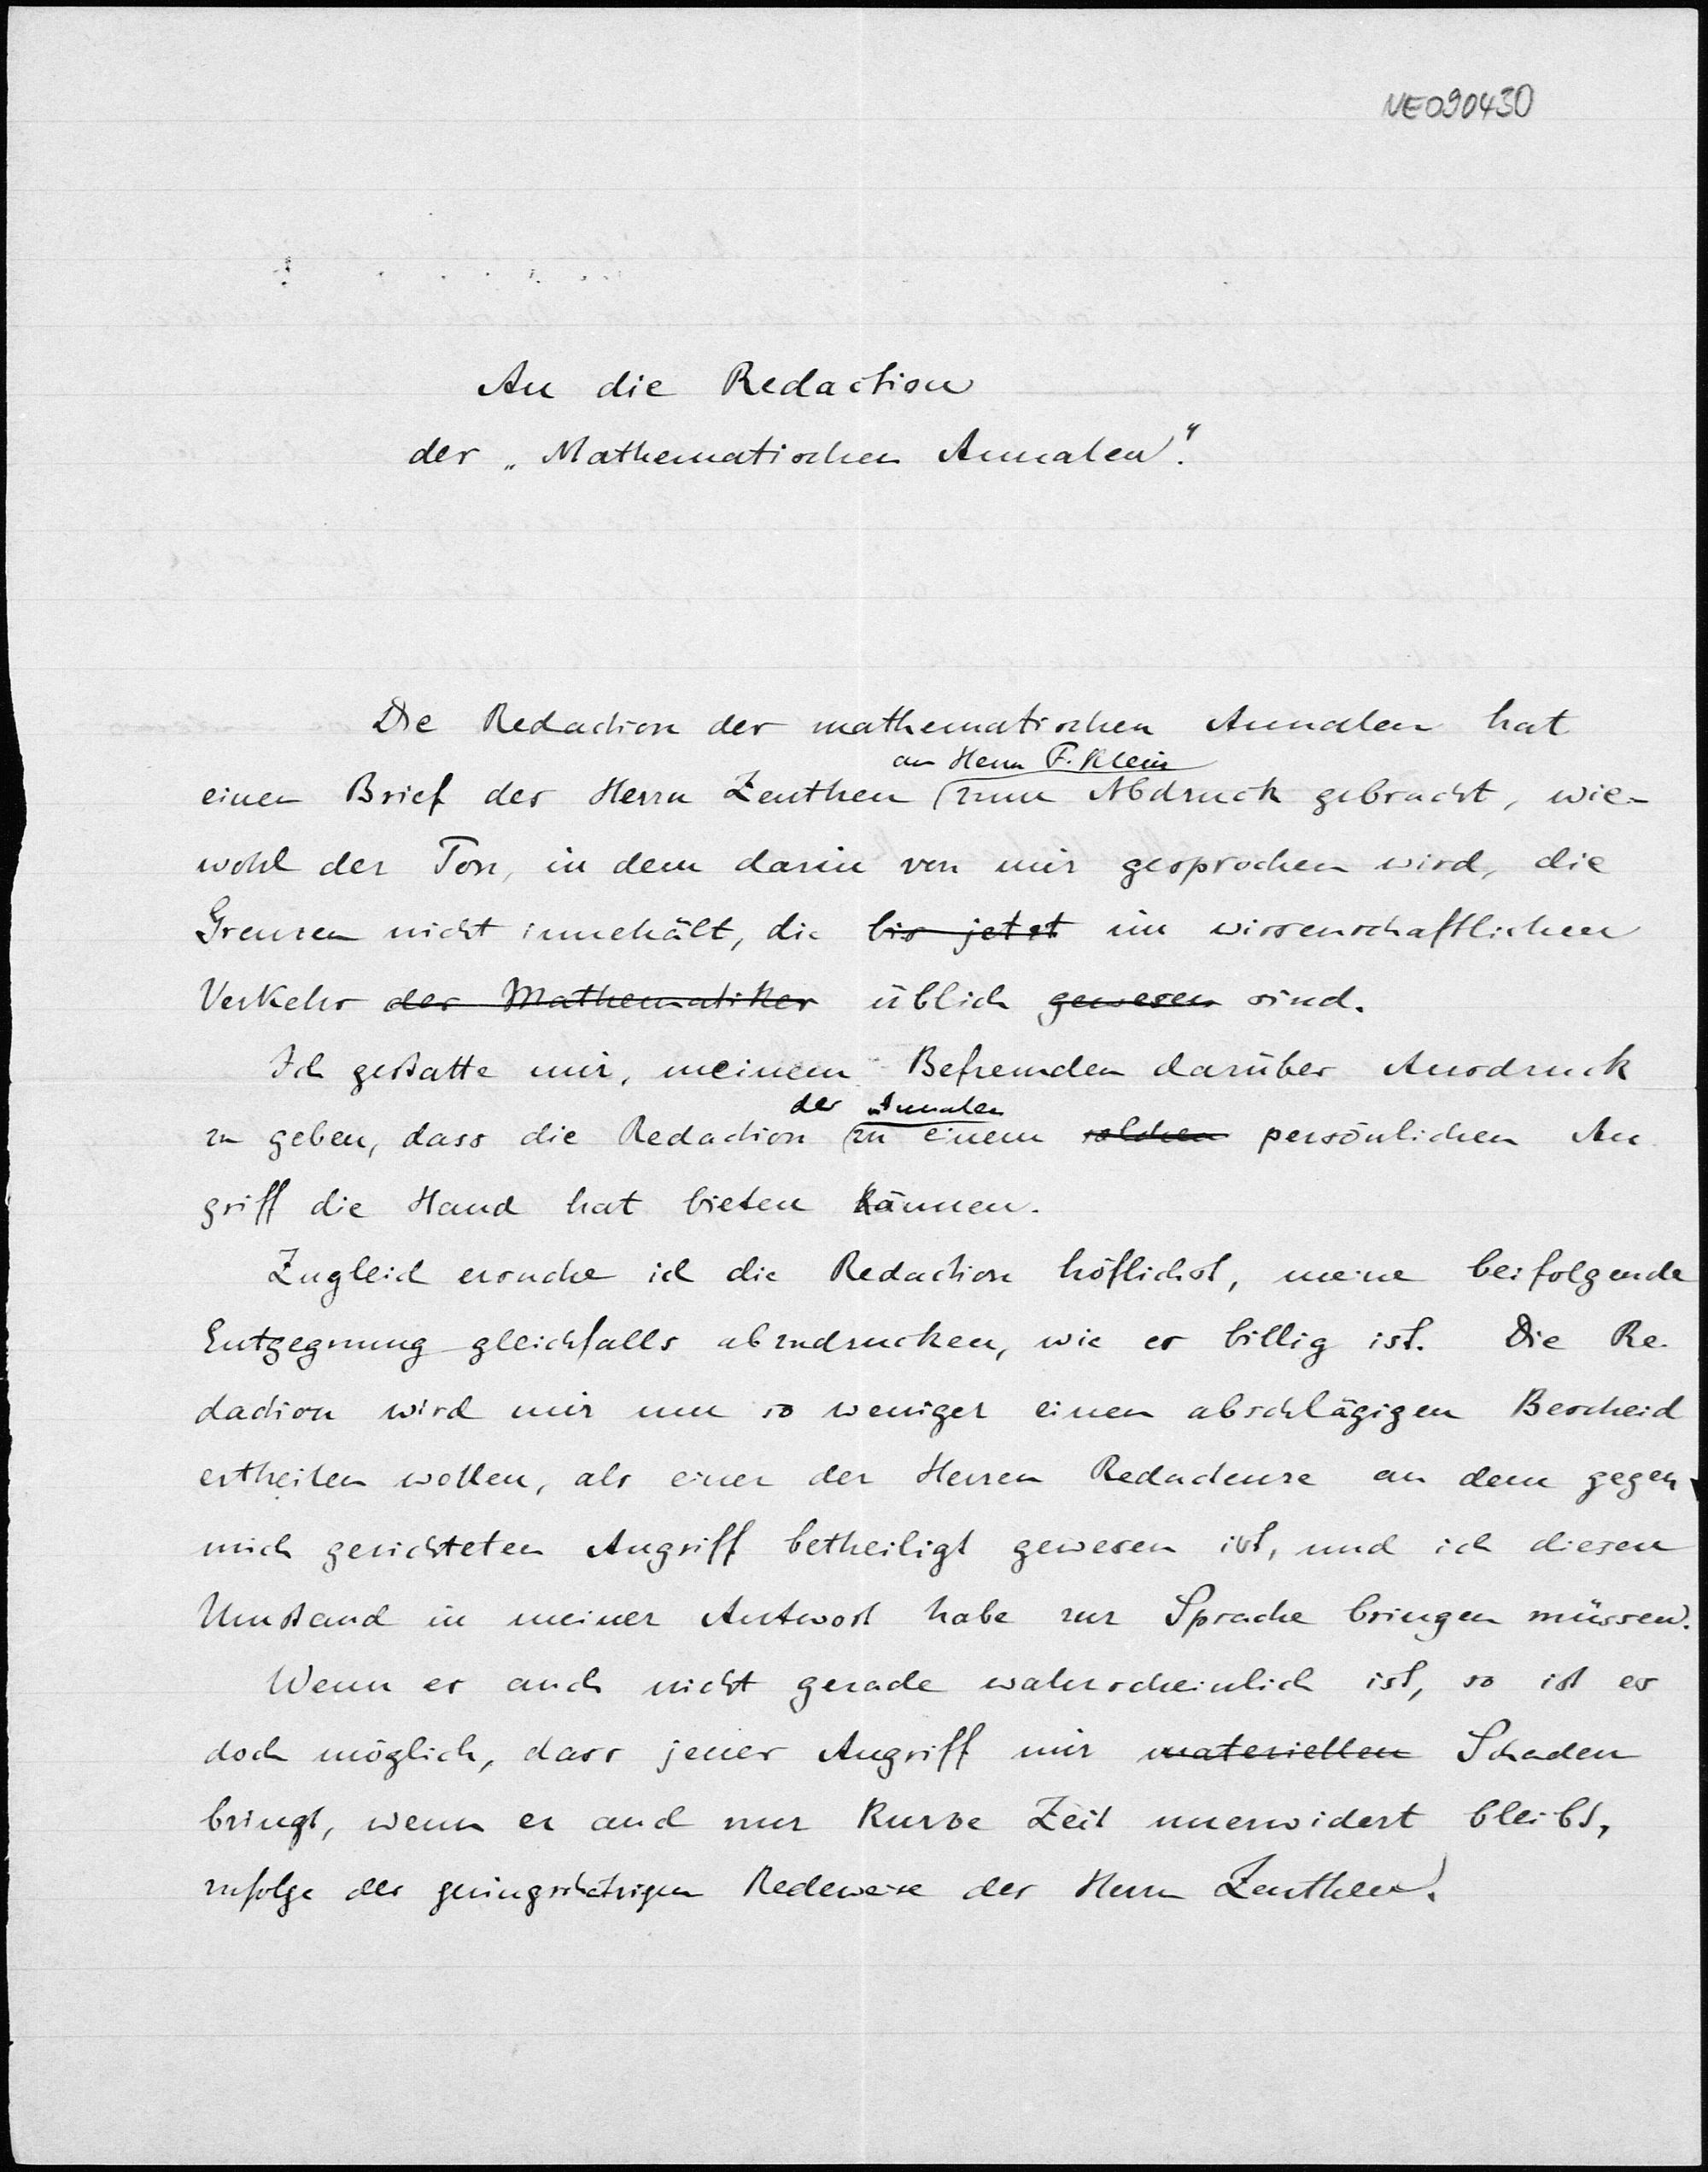 NE090430
An die Redaction
der „Mathematischen Annalen“.
Die Redaction der mathematischen Annalen hat
an Herrn F. Klein
einen Brief des Herrn Zeuthen zum Abdruck gebracht, wie-
wohl der Ton, in dem darin von mir gesprochen wird, die
Grenzen nicht innehält, die bis jetzt im wissenschaftlichen
Verkehr der Mathematiker üblich gewesen sind.
Ich gestatte mir, meinem Befremden darüber Ausdruck
der Annalen
zu geben, dass die Redaction zu einem solchen persönlichen An
griff die Hand hat bieten können.
Zugleich ersuche ich die Redaction höflichst, meine beifolgende
Entgegnung gleichfalls abzudrucken, wie es billig ist. Die Re-
daction wird mir um so weniger einen abschlägigen Bescheid
ertheilen wollen, als einer der Herren Redacteure an dem gegen
mich gerichteten Angriff betheiligt gewesen ist, und ich diesen
Umstand in meiner Antwort habe zur Sprache bringen müssen.
Wenn es auch nicht gerade wahrscheinlich ist, so ist es
doch möglich, dass jener Angriff mir materiellen Schaden
bringt, wenn er auch nur kurze Zeit unerwidert bleibt,
zufolge der geringschätzigen Redeweise des Herrn Zeuthen.